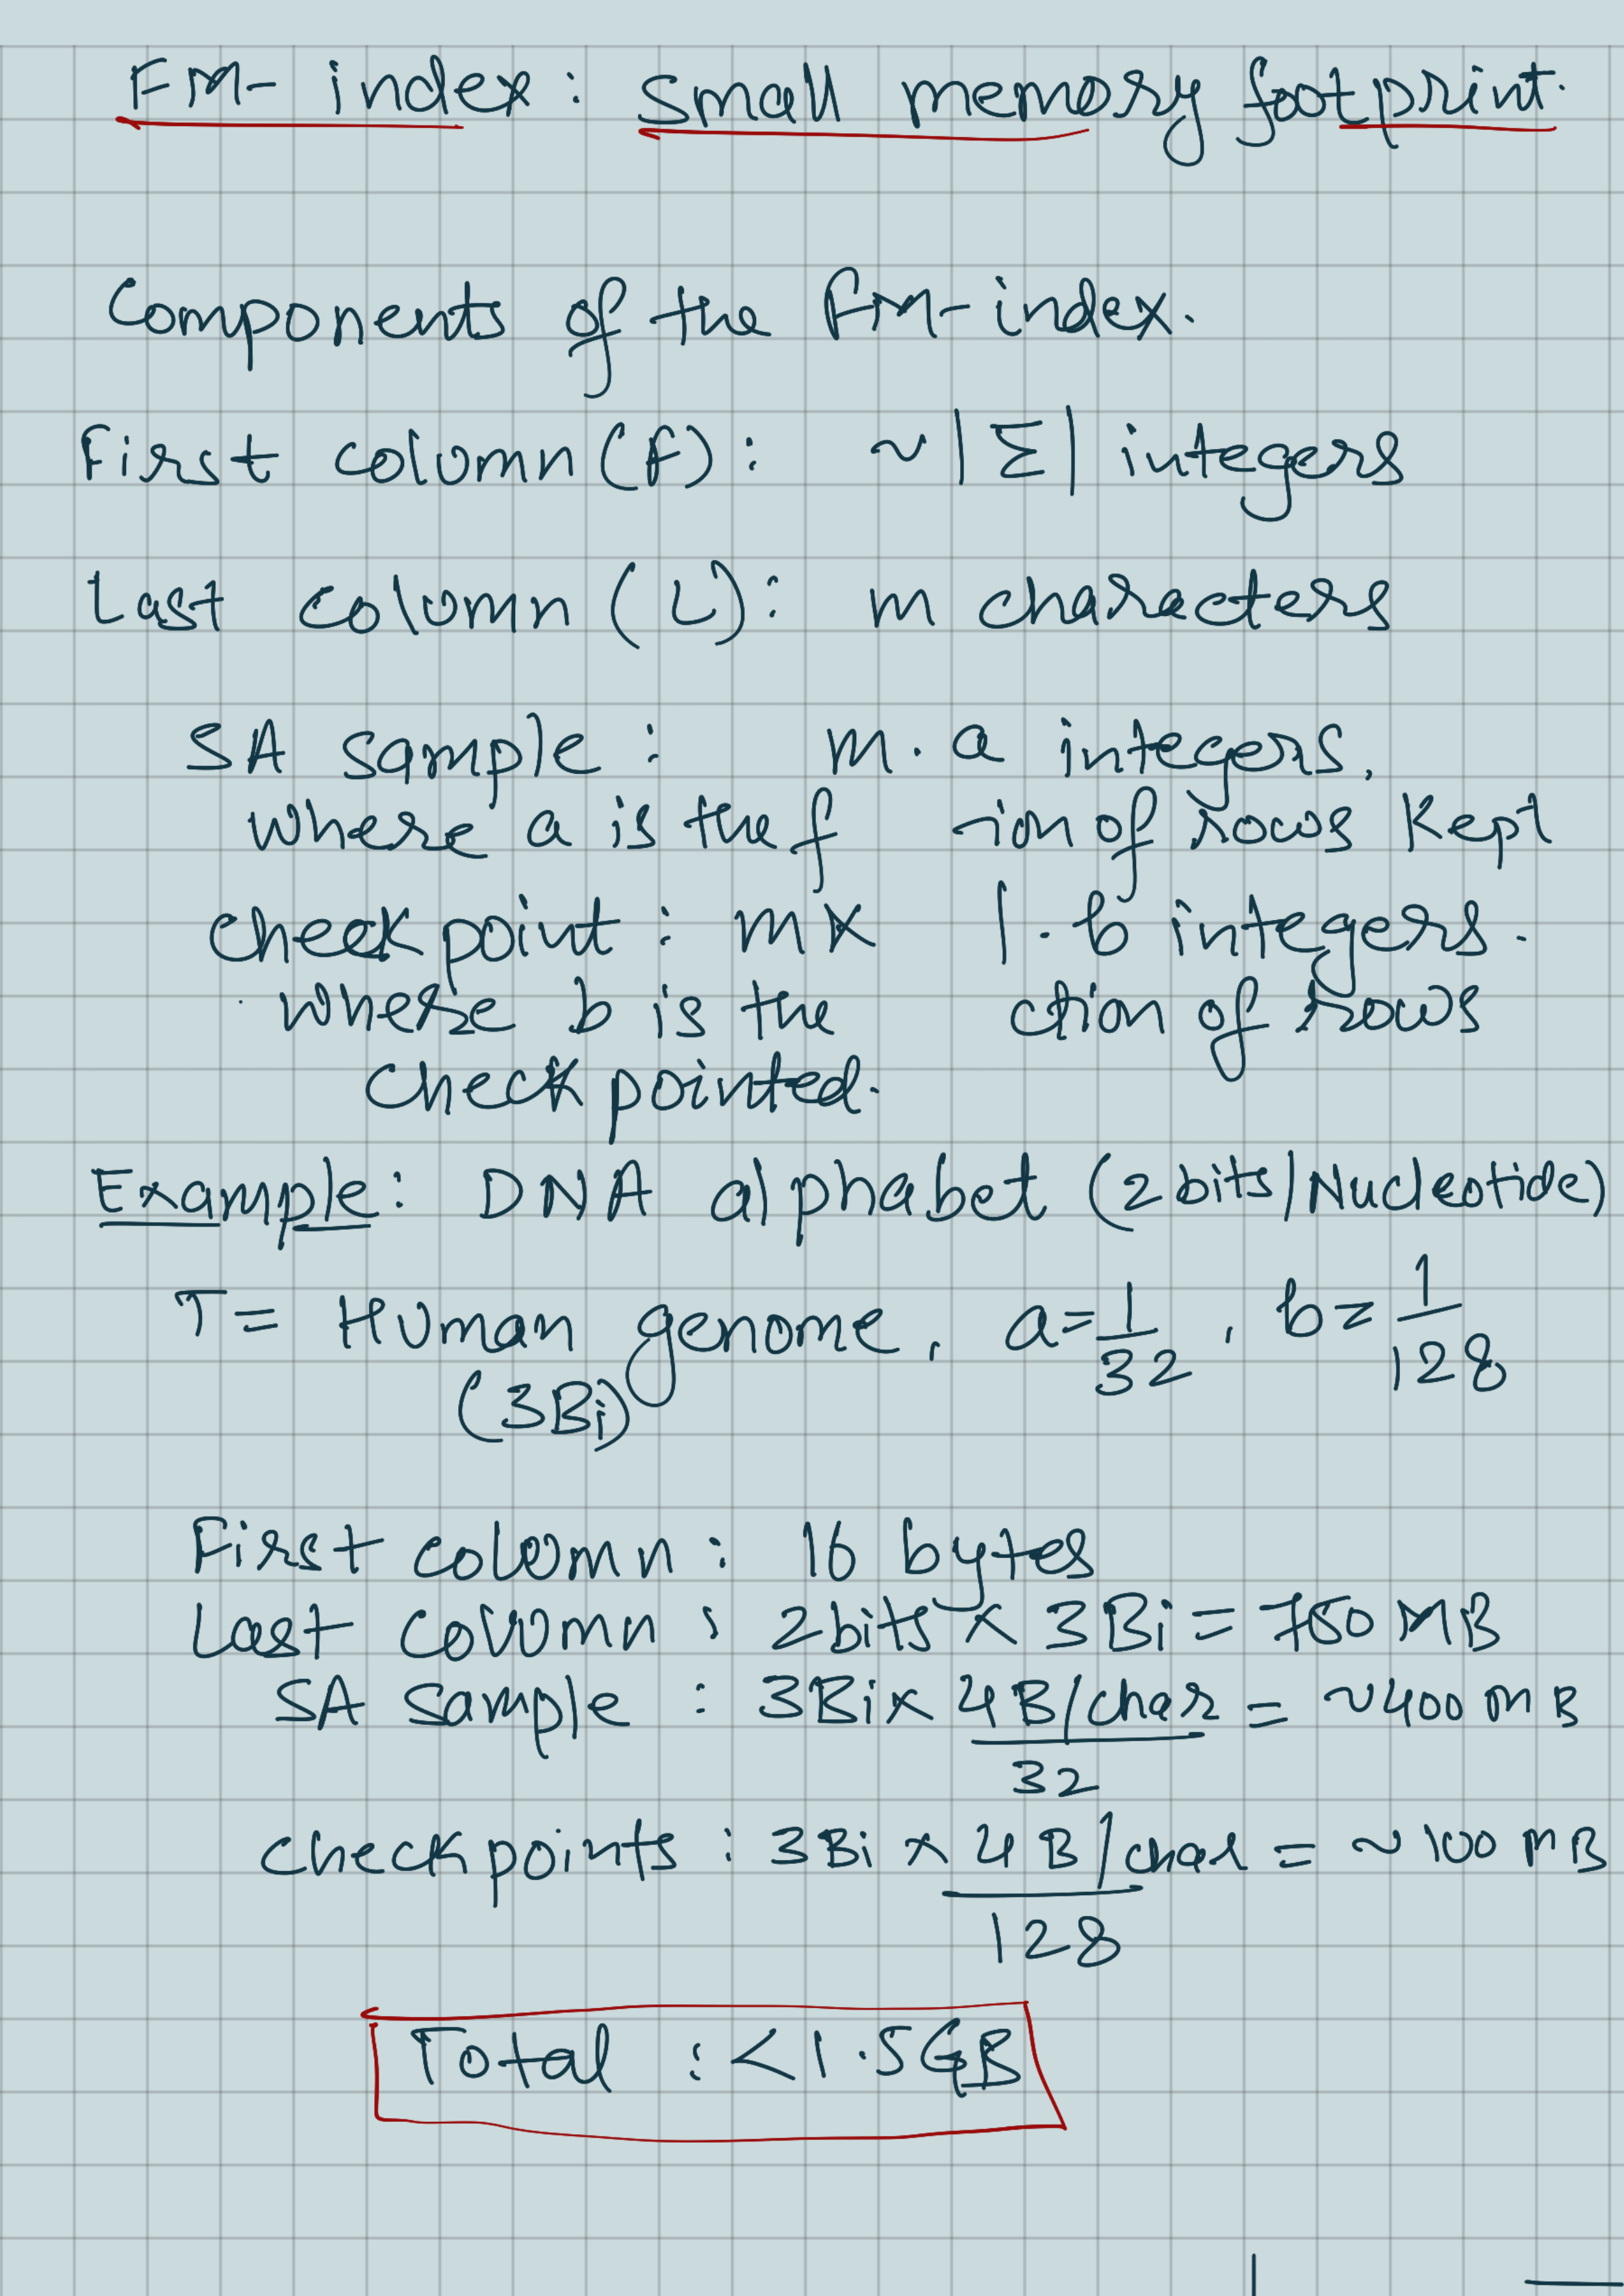 FM-index: small memory footprint.
Components of the FM-index.
First column (F): ~|Σ| integers
Last column (L): m characters
SA sample: m.a integers.
where a is the f ion of rows kept
check point: m x |. b integers.
where b is the ction of rows
check pointed.
Example: DNA alphabet (2 bits/Nucleotide)
T = Human genome, a = 1/32, b = 1/128
(3Bi)
First column: 16 bytes
Last column: 2bits x 3Bi = 750 MB
SA sample: 3Bi x 4B/char = ~400 MB
32
check points: 3Bi x 4B/char = ~100 MB
128
Total: <1.5GB